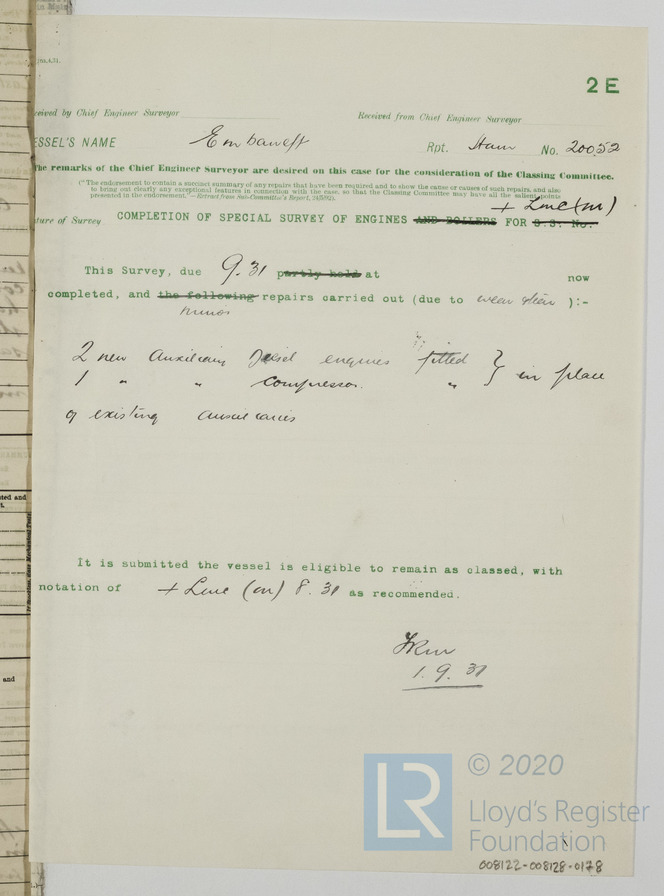 2E
ceived by Chief Engineer Surveyor
Received from Chief Engineer Surveyor
ESSEL'S NAME
Rpt. Ham No. 20052
The remarks of the Chief Engineer Surveyor are desired on this case for the consideration of the Classing Committee.
("The endorsement to contain a succinct summary of any repairs that have been required and to show the cause or causes of such repairs, and also
to bring out clearly any exceptional features in connection with the case, so that the Classing Committee may have all the salient points
presented in the endorsement."—Extract from Sub-Committee's Report, 24/5/92).
+ LMC (on)
ture of Survey COMPLETION OF SPECIAL SURVEY OF ENGINES AND BOILERS FOR S.S. No.
This Survey, due 9.31 partly held at now
completed, and the following repairs carried out (due to wear & tear ):-
minor
2 new Auxiliary Diesel engines fitted } in place
1 " " compressor "
of existing auxiliaries
It is submitted the vessel is eligible to remain as classed, with
notation of + LMC (on) 8.31 as recommended.
1.9.31
© 2020
LR
Lloyd's Register
Foundation
008122-008128-0178